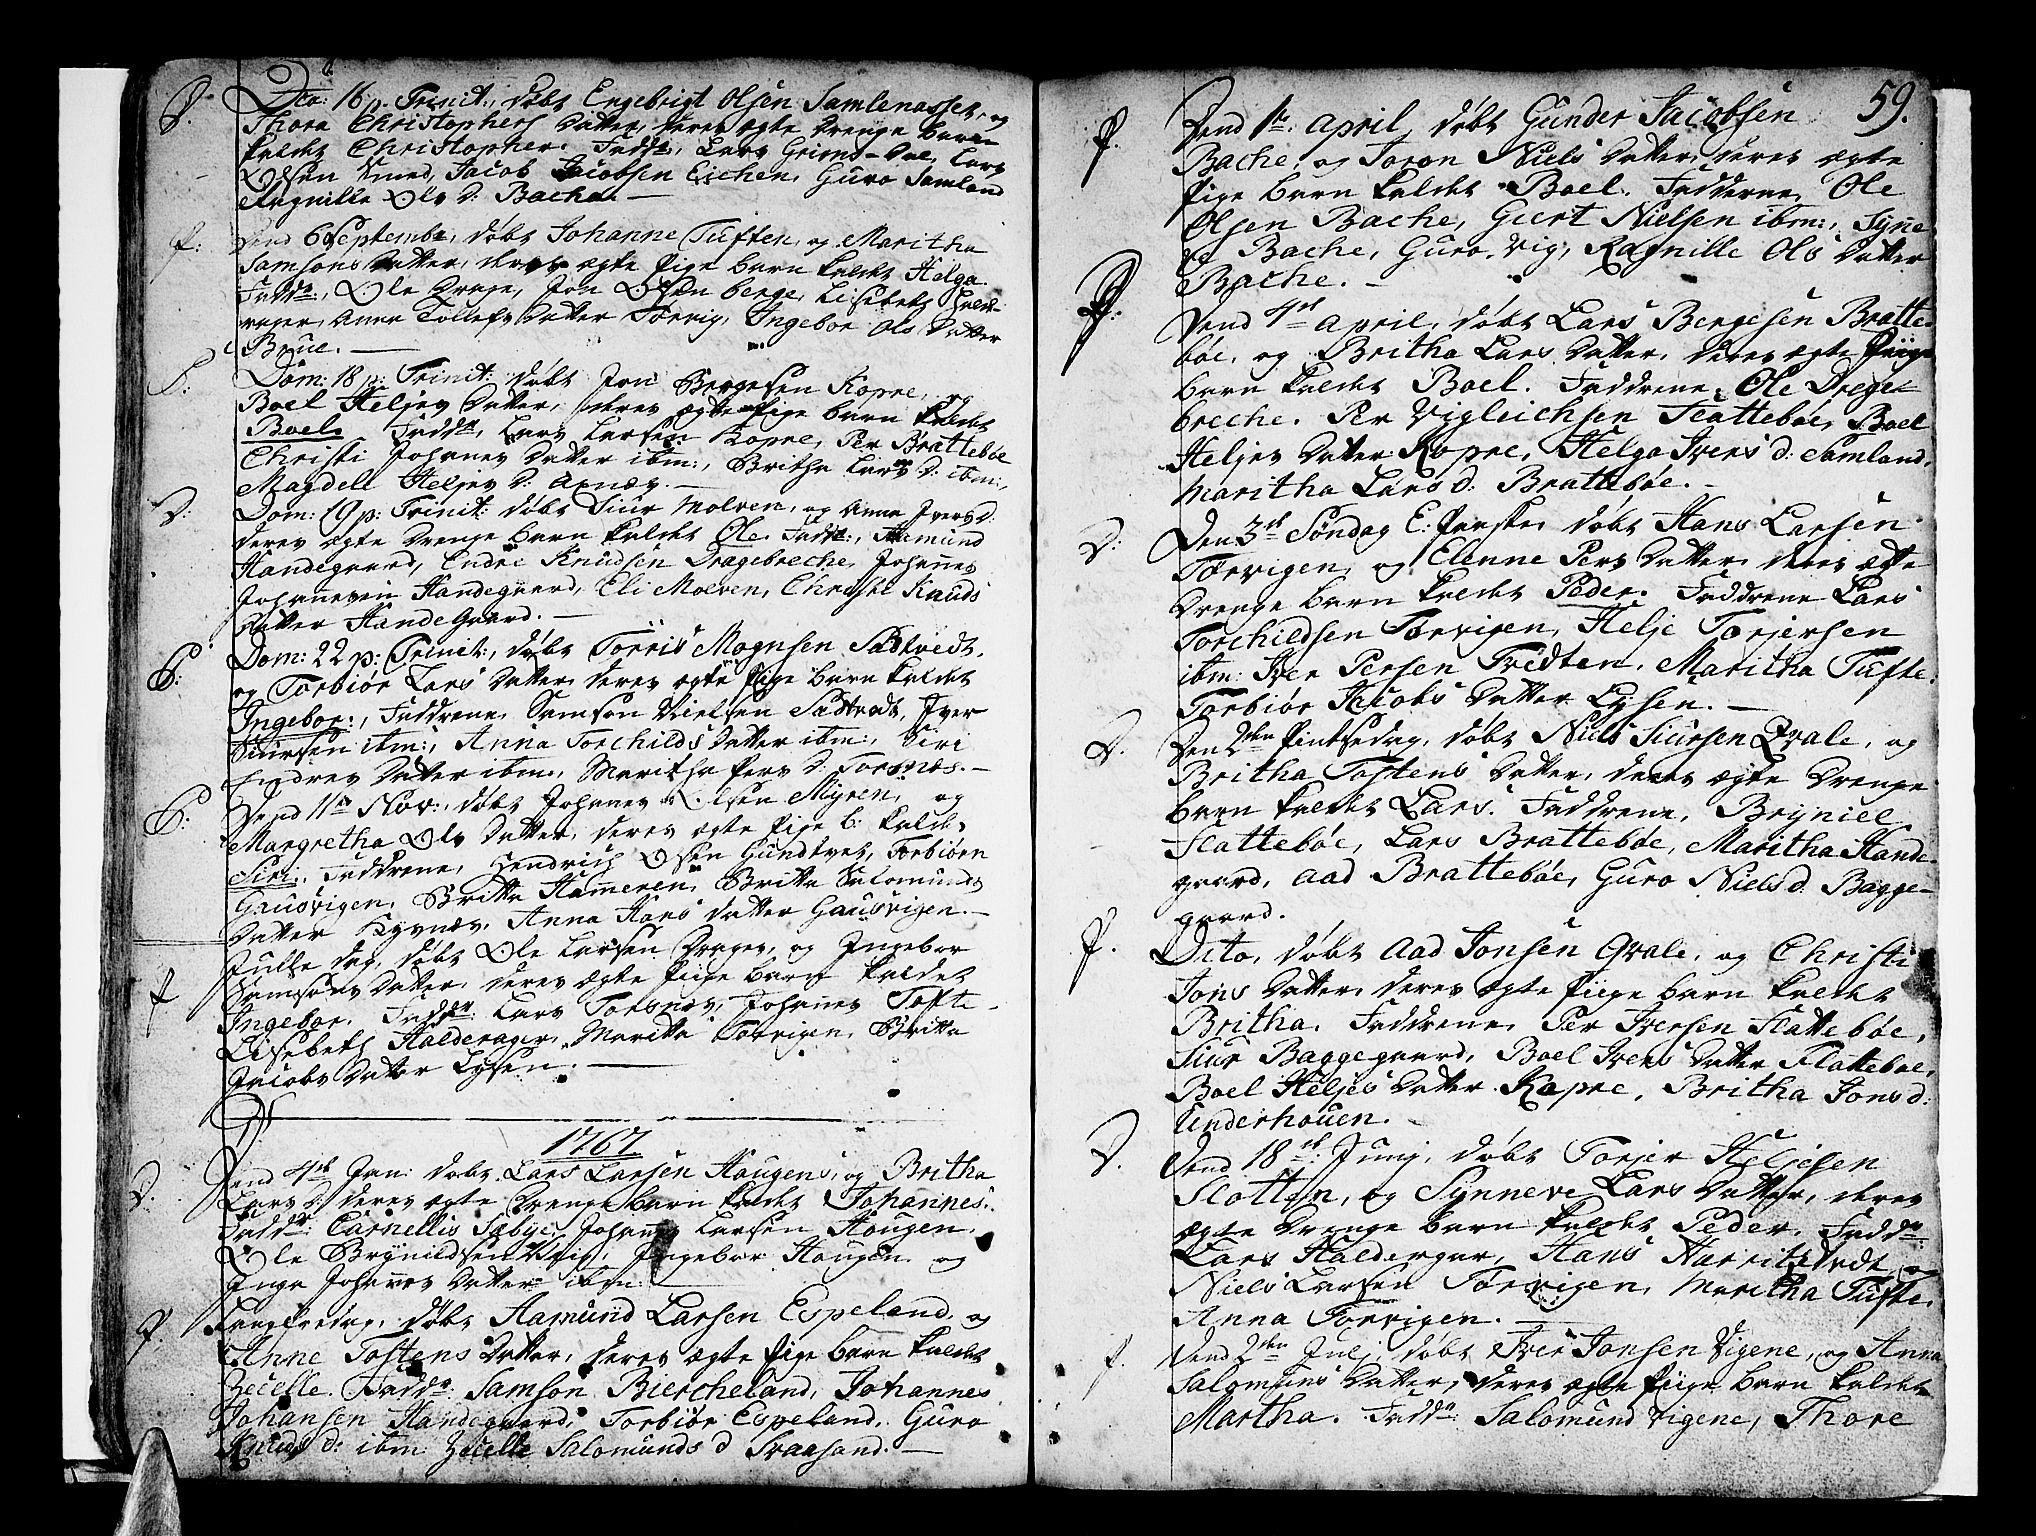 D. Dca: 16 p. Trinit:, døbt Engebrigt Olsen Samlenasset, og
Thora Christophers Datter, deres ægte Drenge barn
kaldet Christopher. Fadd:, Lars Grims-Dal, Lars
Olsen Jacob Jacobsen Eichen, Guro Samland
Ragnille Ols d: Bache. —
P: Dend 6 Septembr, døbt Johanne Tuften, og Maritha
Samsons Datter, deres ægte Pige barn kaldet Helga.
Fadd:, Ole Drage, Jon Olsen berge, Lisebeth Halde-
rager, Anna Tollefs Datter Torvig, Ingebor Ols Datter
Brue. —
Dom: 18 p: Trinit: døbt Jon Bergesen Kopre, og
Boel Heljes Datter, deres ægte Pige barn kaldet
Boel. Fadd:, Lars Larsen Kopre, Per Brattebøe
Christi Johannes Datter ibm:, Britha Lars D: ibm:,
Magdeli Heljes D: Axnæs. —
D: Dom: 19 p: Trinit: døbt Siur Molven, og Anna Ivers d:
deres ægte Drenge barn kaldet Ole. Fadd:, Hamund
Handegaard, Endre Knudsen Dragebreche, Johannes
Johannesen Handegaard, Eli Molven, Christi Knuds
Datter HandeGaard. —
Dom: 22 p: Trinit:, døbt Torris Mognsen Sædtvedt,
og Torbiør Lars Datter, deres ægte Pige barn kaldet
Ingebor:, Faddrene, Samson Nielsen Sædtvedt, Iver
Siursen ibm:, Anna Torchilds Datter ibm:, Siri
Endres Datter ibm:, Maritha Pers D: Torsnæs. —
Dend 11te Nov:, døbt Johannes Olsen Myren, og
Margretha Ols Datter, deres ægte Pige b: kaldet
Siri:, Faddrene, Hendrich Olsen Gundtvet, Torbiørn
Gausvigen, Britta Hameren, Britta Salomunds
Datter Kysnæs, Anna Hans Datter Gausvigen. —
P Juledag, døbt Ole Larsen Drage, og Ingebor
Samsons Datter, deres ægte Pige barn kaldet
Ingebor. Fadd: Lars Torsnæs, Johannes Tofte
Lisebeth Halderager, Maritta Torvigen, Britta
Jacobs Datter Lysen. —
1767
D. Dend 4de Jan: døbt Lars Larsen Haugen, og Britha
Lars D: deres ægte Drenge barn kaldet Johannes:
Fadd: Carnellis Sæbye, Johannes Larsen Hougen,
Ole Brynildsen Vig, Ingebor Hougen og
Inga Johannes Datter ibm:
P. Langfredag, døbt Hamund Larsen Espeland, og
Anne Tostens Datter, deres ægte Pige barn kaldet
Zicelle. Fadd: Samson Biercheland, Johannes
Johansen Handegaard, Torbiør Espeland, Guro
Knuds d: ibm Zicelle Salomunds d Svaasand. —
59.
P. Dend 1te April, døbt Gunder Jacobsen
Bache, og Joron Niels Datter, deres ægte
Pige barn kaldet Boel. Fadderne, Ole
Olsen Bache, Giert Nielsen ibm:, Syne
ve Bache, Guro Vig, Ragnille Ols Datter
Bache. —
P: Dend 4de April, døbt Lars Bergesen Bratte-
bøe, og Britha Lars Datter, deres ægte Piige
barn kaldet Boel. Faddrene, Ole Drege-
breche, Per Vigleichsen Flattebøe, Boel
Heljes Datter Kopre, Helga Ivers d: Samland,
Maritha Lars d: Brattebøe. —
D: Den 3de Søndag E. Paaske, døbt Hans Larsen
Torvigen, og Elenne Pers Datter, deres ægte
Drenge barn kaldet Peder. Faddrene Lars
Torchildsen Torvigen, Helje Torjersen
ibm: Iver Persen Tvedten, Maritha Tufte,
Torbiør Jacobs Datter Lysen. —
D. Den 2den Pintsedag, døbt Niels Siursen Qvale, og
Britha Tostens Datter, deres ægte Drenge
barn kaldet Lars. Faddrene, Bryniel
Flattebøe, Lars Brattebøe, Maritha Hande-
gaard, Aad Brattebøe, Guro Niels d. Bagge-
gaard.
P. Dito, døbt Aad Jonsen Qvale, og Christi
Jons Datter, deres ægte Piige barn kaldet
Britha. Faddrene, Per Iversen Flattebøe,
Siur Baggegaard, Boel Ivers Datter Flattebøe,
Boel Heljes Datter Kopre, Britha Jons d:
Underhouen. —
D. Dend 18de Junij, døbt Torjer Heljesen
Slotten, og Synneve Lars Datter, deres
ægte Drenge barn kaldet Peder. Fadd:
Lars Haldergar, Hans Narritstvedt, og
Niels Larsen Torvigen, Maritha Tufte,
Anna Torvigen. —
P. Dend 2den Julj, døbt Iver Jonsen Vigene, og Anna
Salomuns Datter, deres ægte Piige barn kaldet
Martha. Fadd: Salomund Vigene, Thore